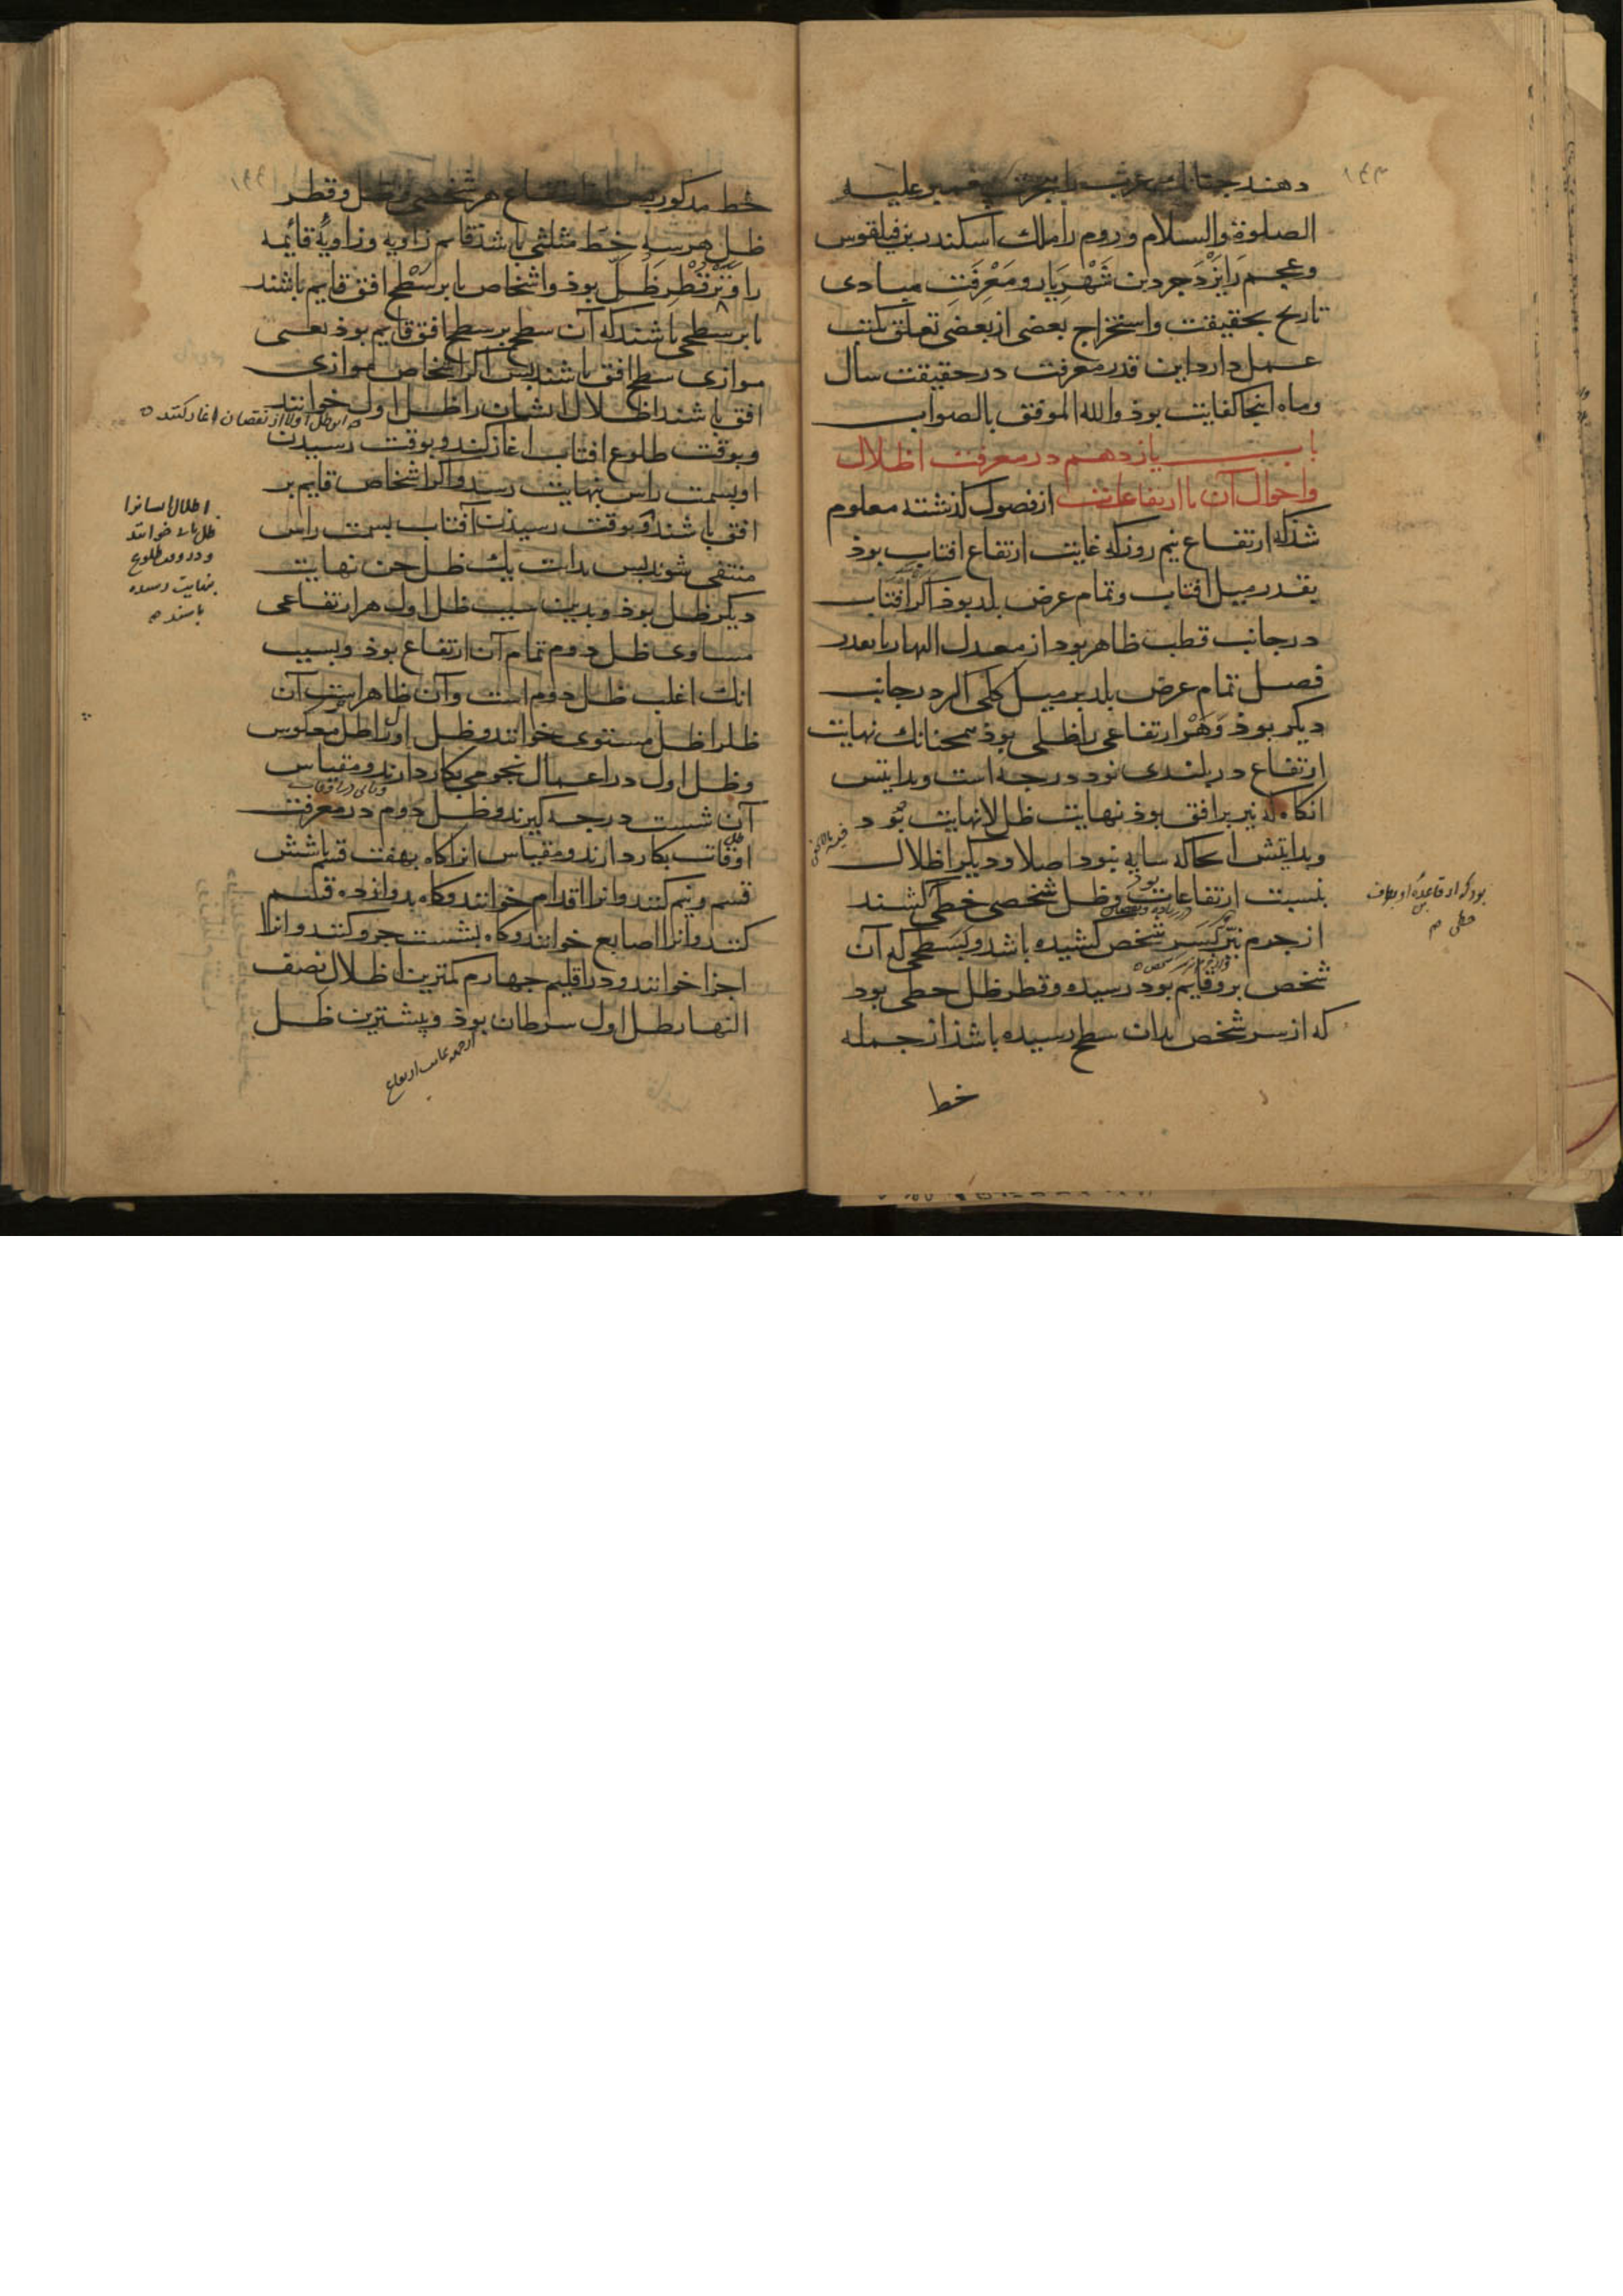 دهند چنانك عرب را هجرت پیغمبر علیه
الصلوة والسلام و روم را ملك اسکندر بن فیلقوس
وعجم را یَزْدَجرد بن شَهْرِیار و مَعْرِفَتِ مبادی
تاریخ بحقیقت و استخراج بعضی از بعضی تعلق بکتب
عمل دارد این قدر معرفت در حقیقت سال
وماه اینجا کفایت بوذ والله الموفق بالصواب
باب یازدهم در معرفت اظلال
واحوال آن با ارتفاعات از فصول کذشته معلوم
شذ که ارتفاع نیم روز که غایت ارتفاع افتاب بوذ
بقدر میل افتاب و تمام عرض بلد بوذ اکر افتاب
در جانب قطب ظاهر بود از معدل النهار یا بعدر
فصل تمام عرض بلد بر میل کلی اکر در جانب
دیکر بوذ وَهَر ارتفاعی را ظلی بوذ همچنانك نهایت
ارتفاع در بلندی نود درجه است وبدایتش
انکاه که نیر بر افق بوذ نهایت ظل لانهایت بود
وبدایتش انجا که سایه نبود اصلا ودیکر اظلال
بنسبت ارتفاعات بود وظل شخصی خطی کشند
از جرم نیر کبسر شخص کشیده باشد و بسطحی که آن
شخص برو قایم بود رسیده و قطر ظل خطی بود
که از سر شخص بدان سطح رسیده باشذ از جمله
خط
بود که از قاعده او بطرف
خطی
۱۴۳
خط مذکور پس از ارتفاع هر شخصی و ظل و قطر
ظل هر سه خط مثلثی باشذ قایم زاویه وزاویۀ قائمه
را وَتَر قُطْرِ ظِلّ بوذ واشخاص یا بر سَطْحِ افق قایم باشند
یا بر سطحی باشند که آن سطح بر سطح افق قایم بوذ یعنی
موازی سطح افق باشند پس اکر اشخاص موازی
افق باشند اظلال ایشان را ظل اول خوانند
وبوقت طلوع افتاب اغاز کند و بوقت رسیدن
او بسمت راس بنهایت رسد و اکر اشخاص قایم بر
افق باشند و بوقت رسیذن آفتاب بسمت راس
منتفی شوند پس بدایت یك ظل حین نهایت
دیکر ظل بوذ وبدین سبب ظل اول هر ارتفاعی
مساوی ظل دوم تمام آن ارتفاع بوذ وبسبب
انك اغلب ظل دوم است وآن ظاهرترست آن
ظل را ظل مستوی خوانند و ظل اول را ظل معکوس
وظل اول در اعمال نجومی بکار دارند و مقیاس
آن شست درجه کیرند و ظل دوم در معرفت
اوقات بکار دارند و مقیاس انرا کاه بهفت قسم یا شش
قسم و نیم کنند وانرا اقدام خوانند و کاه بدوازده قسم
کنند وانرا اصابع خوانند و کاه بشست جزو کنند وانرا
اجزا خوانند و در اقلیم چهارم کمترین اظلال نصف
النهار ظل اول سرطان بوذ و بیشترین ظل
این ظل اولا از نقصان اغاز کند
اظلال ایشانرا
ظل خوانند
و در وقت طلوع
بنهایت رسیده
باشند